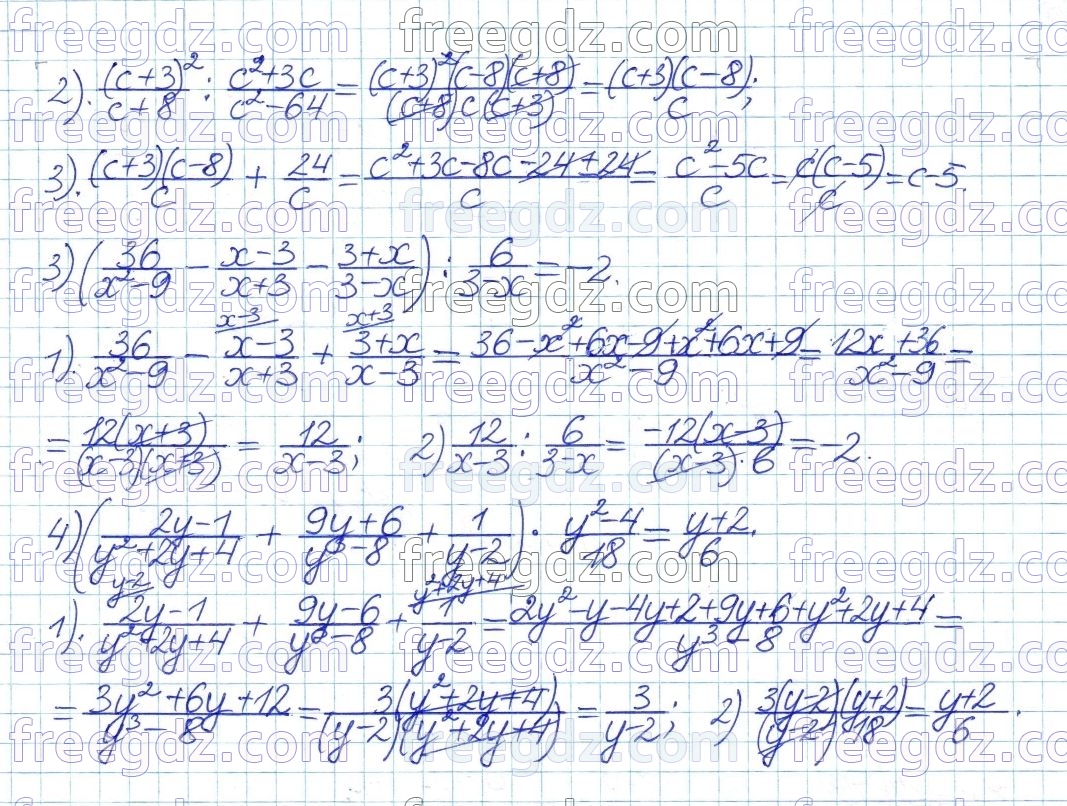 2). (c+3)²/(c+8) : (c²+3c)/(c²-64) = ((c+3)²(c-8)(c+8))/((c+8)c(c+3)) = ((c+3)(c-8))/c;
3). ((c+3)(c-8))/c + 24/c = (c²+3c-8c-24+24)/c = (c²-5c)/c = (c(c-5))/c = c-5.
3) (36/(x²-9) - (x-3)/(x+3) - (3+x)/(3-x)) : 6/(3-x) = -2.
x-3 x+3
1). 36/(x²-9) - (x-3)/(x+3) + (3+x)/(x-3) = (36-x²+6x-9+x²+6x+9)/(x²-9) = (12x+36)/(x²-9) =
= (12(x+3))/((x-3)(x+3)) = 12/(x-3); 2) 12/(x-3) : 6/(3-x) = (-12(x-3))/((x-3)·6) = -2.
4) ((2y-1)/(y²+2y+4) + (9y+6)/(y³-8) + 1/(y-2)) · (y²-4)/18 = (y+2)/6.
y-2 y²+2y+4
1). (2y-1)/(y²+2y+4) + (9y-6)/(y³-8) + 1/(y-2) = (2y²-y-4y+2+9y+6+y²+2y+4)/(y³-8) =
= (3y²+6y+12)/(y³-8) = (3(y²+2y+4))/((y-2)(y²+2y+4)) = 3/(y-2); 2) (3(y-2)(y+2))/((y-2)18) = (y+2)/6.
freegdz.com